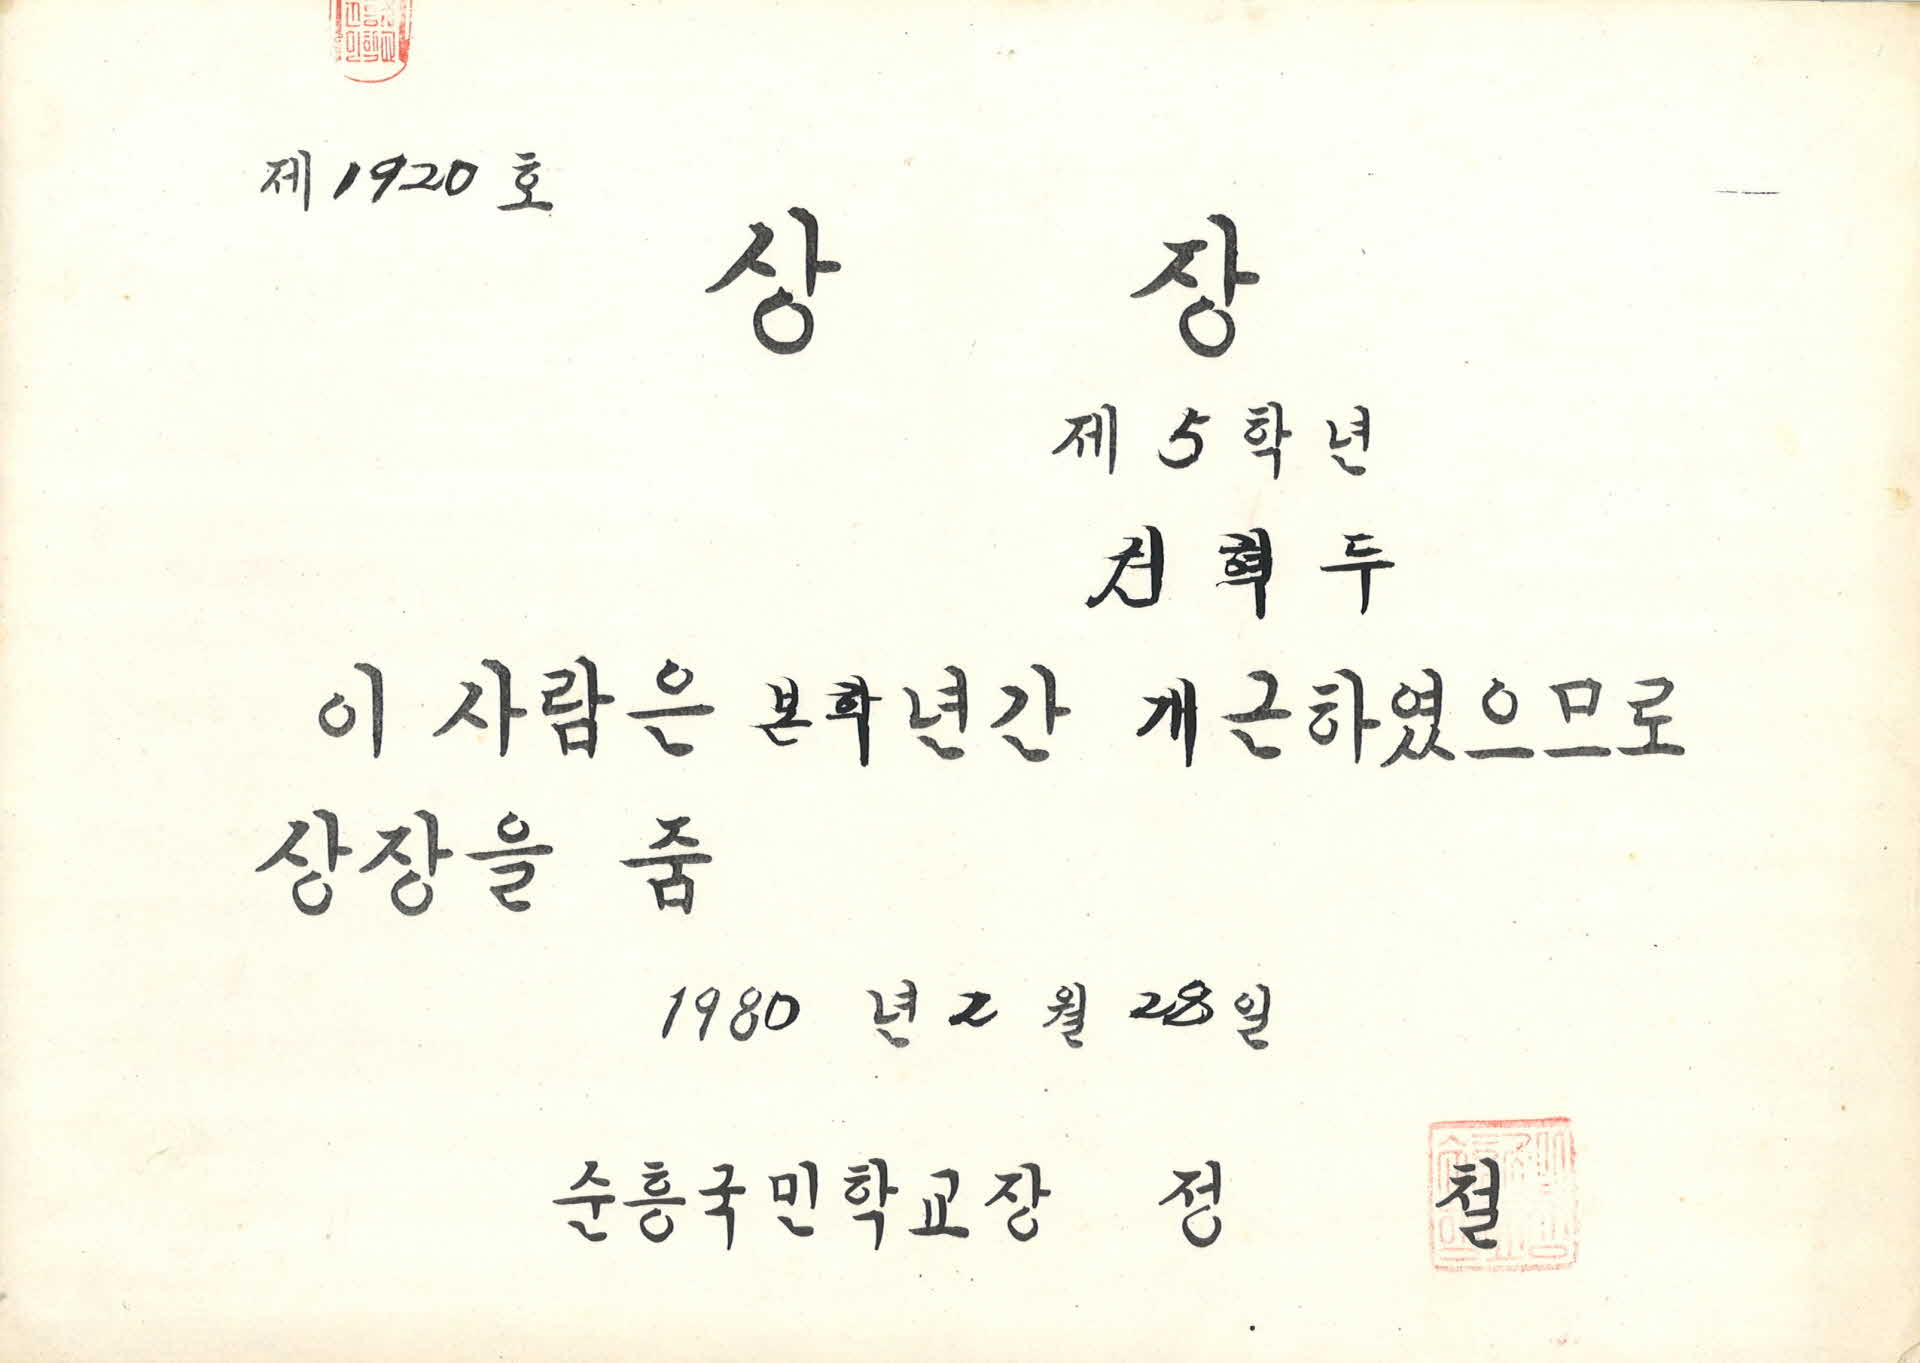 제 1920 호
상 장
제 5 학년
혁두
이 사람은 본학년간 개근하였으므로
상장을 줌
1980 년 2 월 28 일
순흥국민학교장 정 철